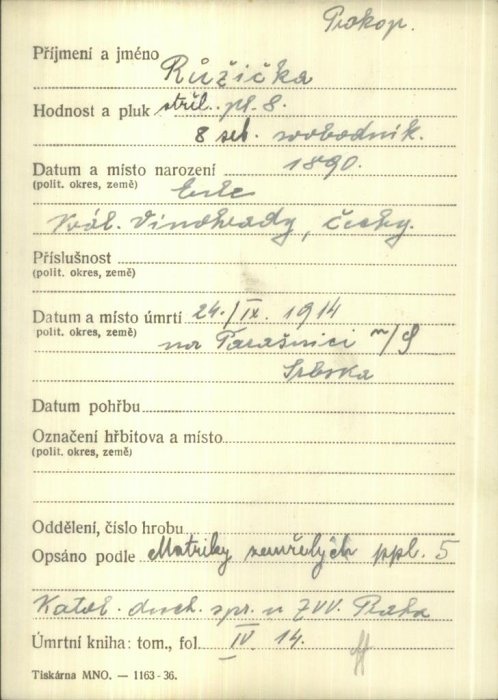 Prokop.
Příjmení a jméno Růžička
Hodnost a pluk střel. pl. 8.
8 set. svobodník.
Datum a místo narození 1890.
(polit. okres, země)
Král. Vinohrady, Čechy.
Příslušnost
(polit. okres, země)
Datum a místo úmrtí 24./IX. 1914
polit. okres, země) na Parašnici n/S
Srbska
Datum pohřbu
Označení hřbitova a místo
(polit. okres, země)
Oddělení, číslo hrobu
Opsáno podle Matriky zemřelých ppl. 5
Katol. duch. spr. u ZVV. Praha
Úmrtní kniha: tom., fol. IV. 14.
Tiskárna MNO. — 1163-36.